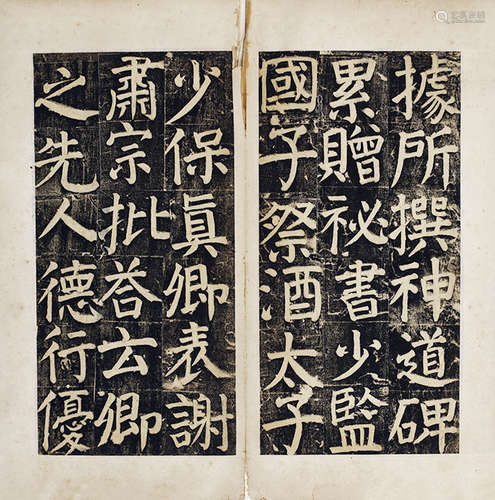 據所撰神道碑
累贈祕書少監
國子祭酒太子
少保真卿表謝
肅宗批答云卿
之先人德行優